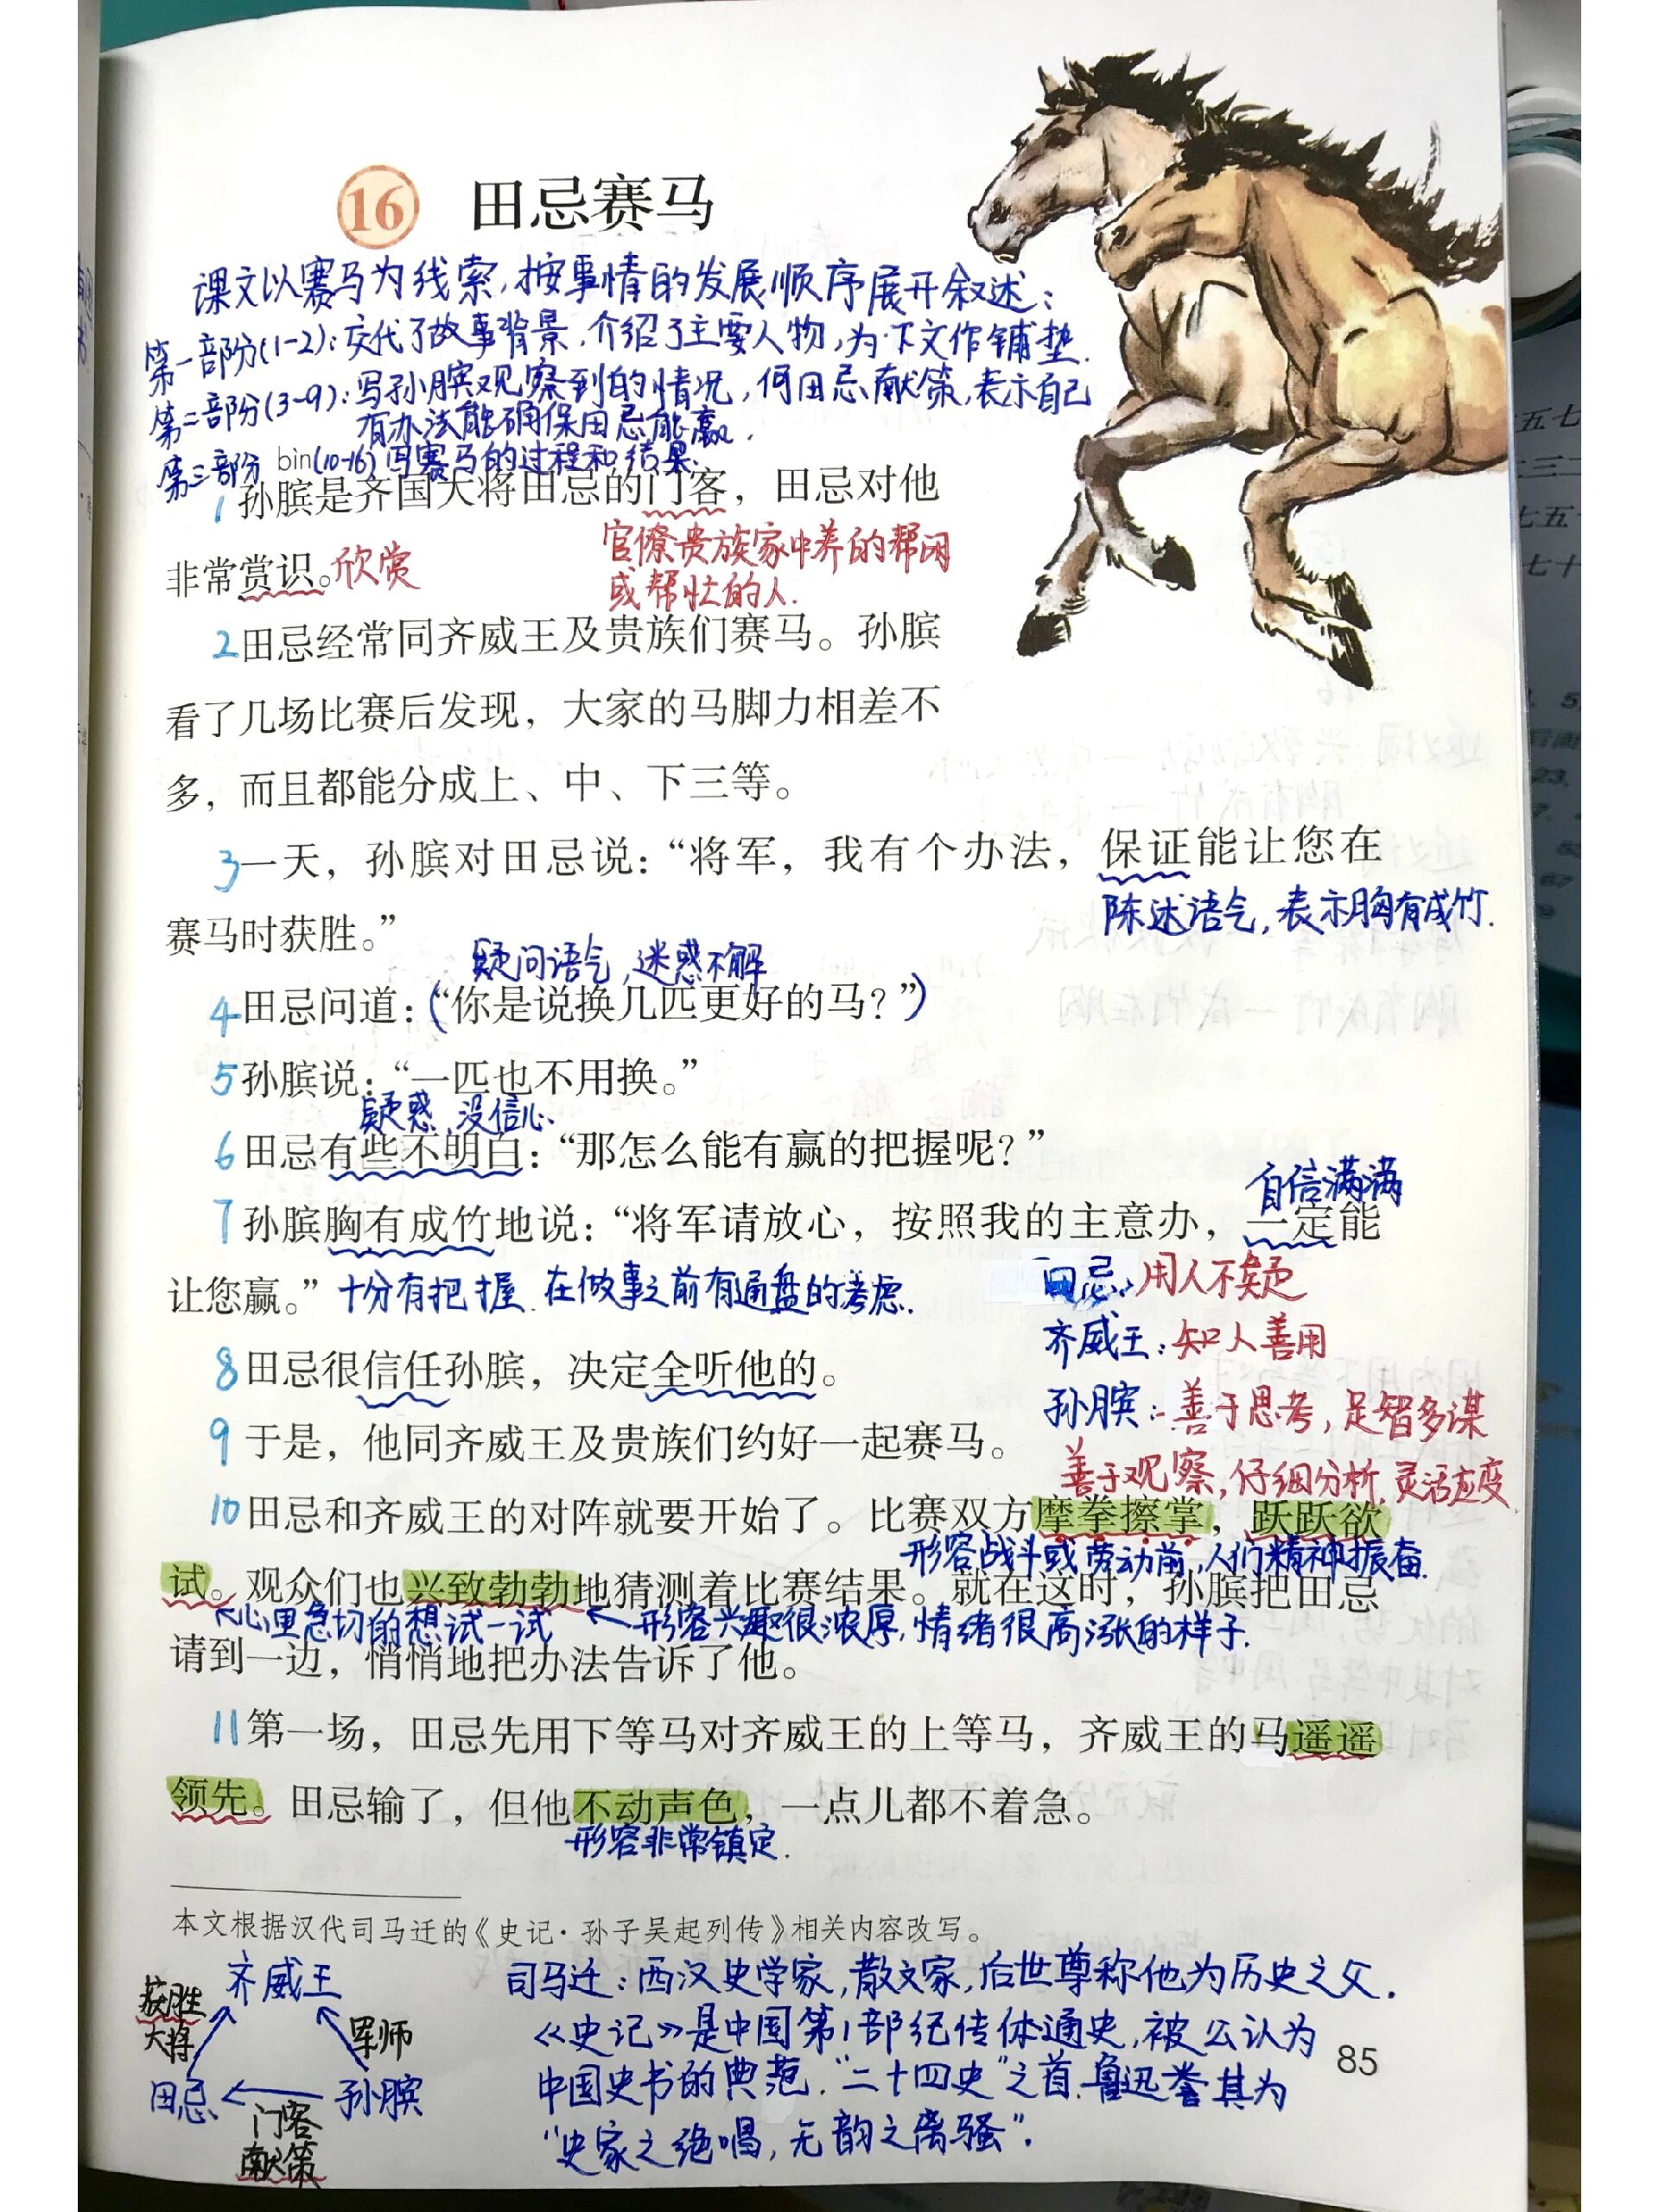 16 田忌赛马
课文以赛马为线索,按事情的发展顺序展开叙述:
第一部分(1-2):交代了故事背景,介绍了主要人物,为下文作铺垫.
第二部分(3-9):写孙膑观察到的情况,何田忌献策,表示自己
有办法能确保田忌能赢.
第三部分(10-16)写赛马的过程和结果.
bìn
1 孙膑是齐国大将田忌的门客,田忌对他
官僚贵族家中养的帮闲
非常赏识。欣赏
或帮忙的人.
2 田忌经常同齐威王及贵族们赛马。孙膑
看了几场比赛后发现,大家的马脚力相差不
多,而且都能分成上、中、下三等。
3 一天,孙膑对田忌说:“将军,我有个办法,保证能让您在
陈述语气,表示胸有成竹.
赛马时获胜。”
疑问语气,迷惑不解
4 田忌问道:(“你是说换几匹更好的马?”)
5 孙膑说:“一匹也不用换。”
疑惑,没信心.
6 田忌有些不明白:“那怎么能有赢的把握呢?”
自信满满
7 孙膑胸有成竹地说:“将军请放心,按照我的主意办,一定能
让您赢。”十分有把握.在做事之前有通盘的考虑.
田忌:用人不疑
齐威王:知人善用
8 田忌很信任孙膑,决定全听他的。
孙膑:善于思考,足智多谋
9 于是,他同齐威王及贵族们约好一起赛马。
善于观察,仔细分析,灵活应变
10 田忌和齐威王的对阵就要开始了。比赛双方摩拳擦掌,跃跃欲
形容战斗或劳动前,人们精神振奋.
试。观众们也兴致勃勃地猜测着比赛结果。就在这时,孙膑把田忌
心里急切的想试一试 形容兴趣很浓厚,情绪很高涨的样子.
请到一边,悄悄地把办法告诉了他。
11 第一场,田忌先用下等马对齐威王的上等马,齐威王的马遥遥
领先。田忌输了,但他不动声色,一点儿都不着急。
形容非常镇定.
本文根据汉代司马迁的《史记·孙子吴起列传》相关内容改写。
齐威王
获胜
大将
军师
田忌 孙膑
门客
献策
司马迁:西汉史学家,散文家,后世尊称他为历史之父.
《史记》是中国第1部纪传体通史,被公认为
中国史书的典范.“二十四史”之首.鲁迅誉其为
“史家之绝唱,无韵之离骚”.
85